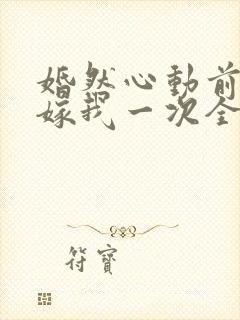 婚然心動前
嫁我一次全
符寶